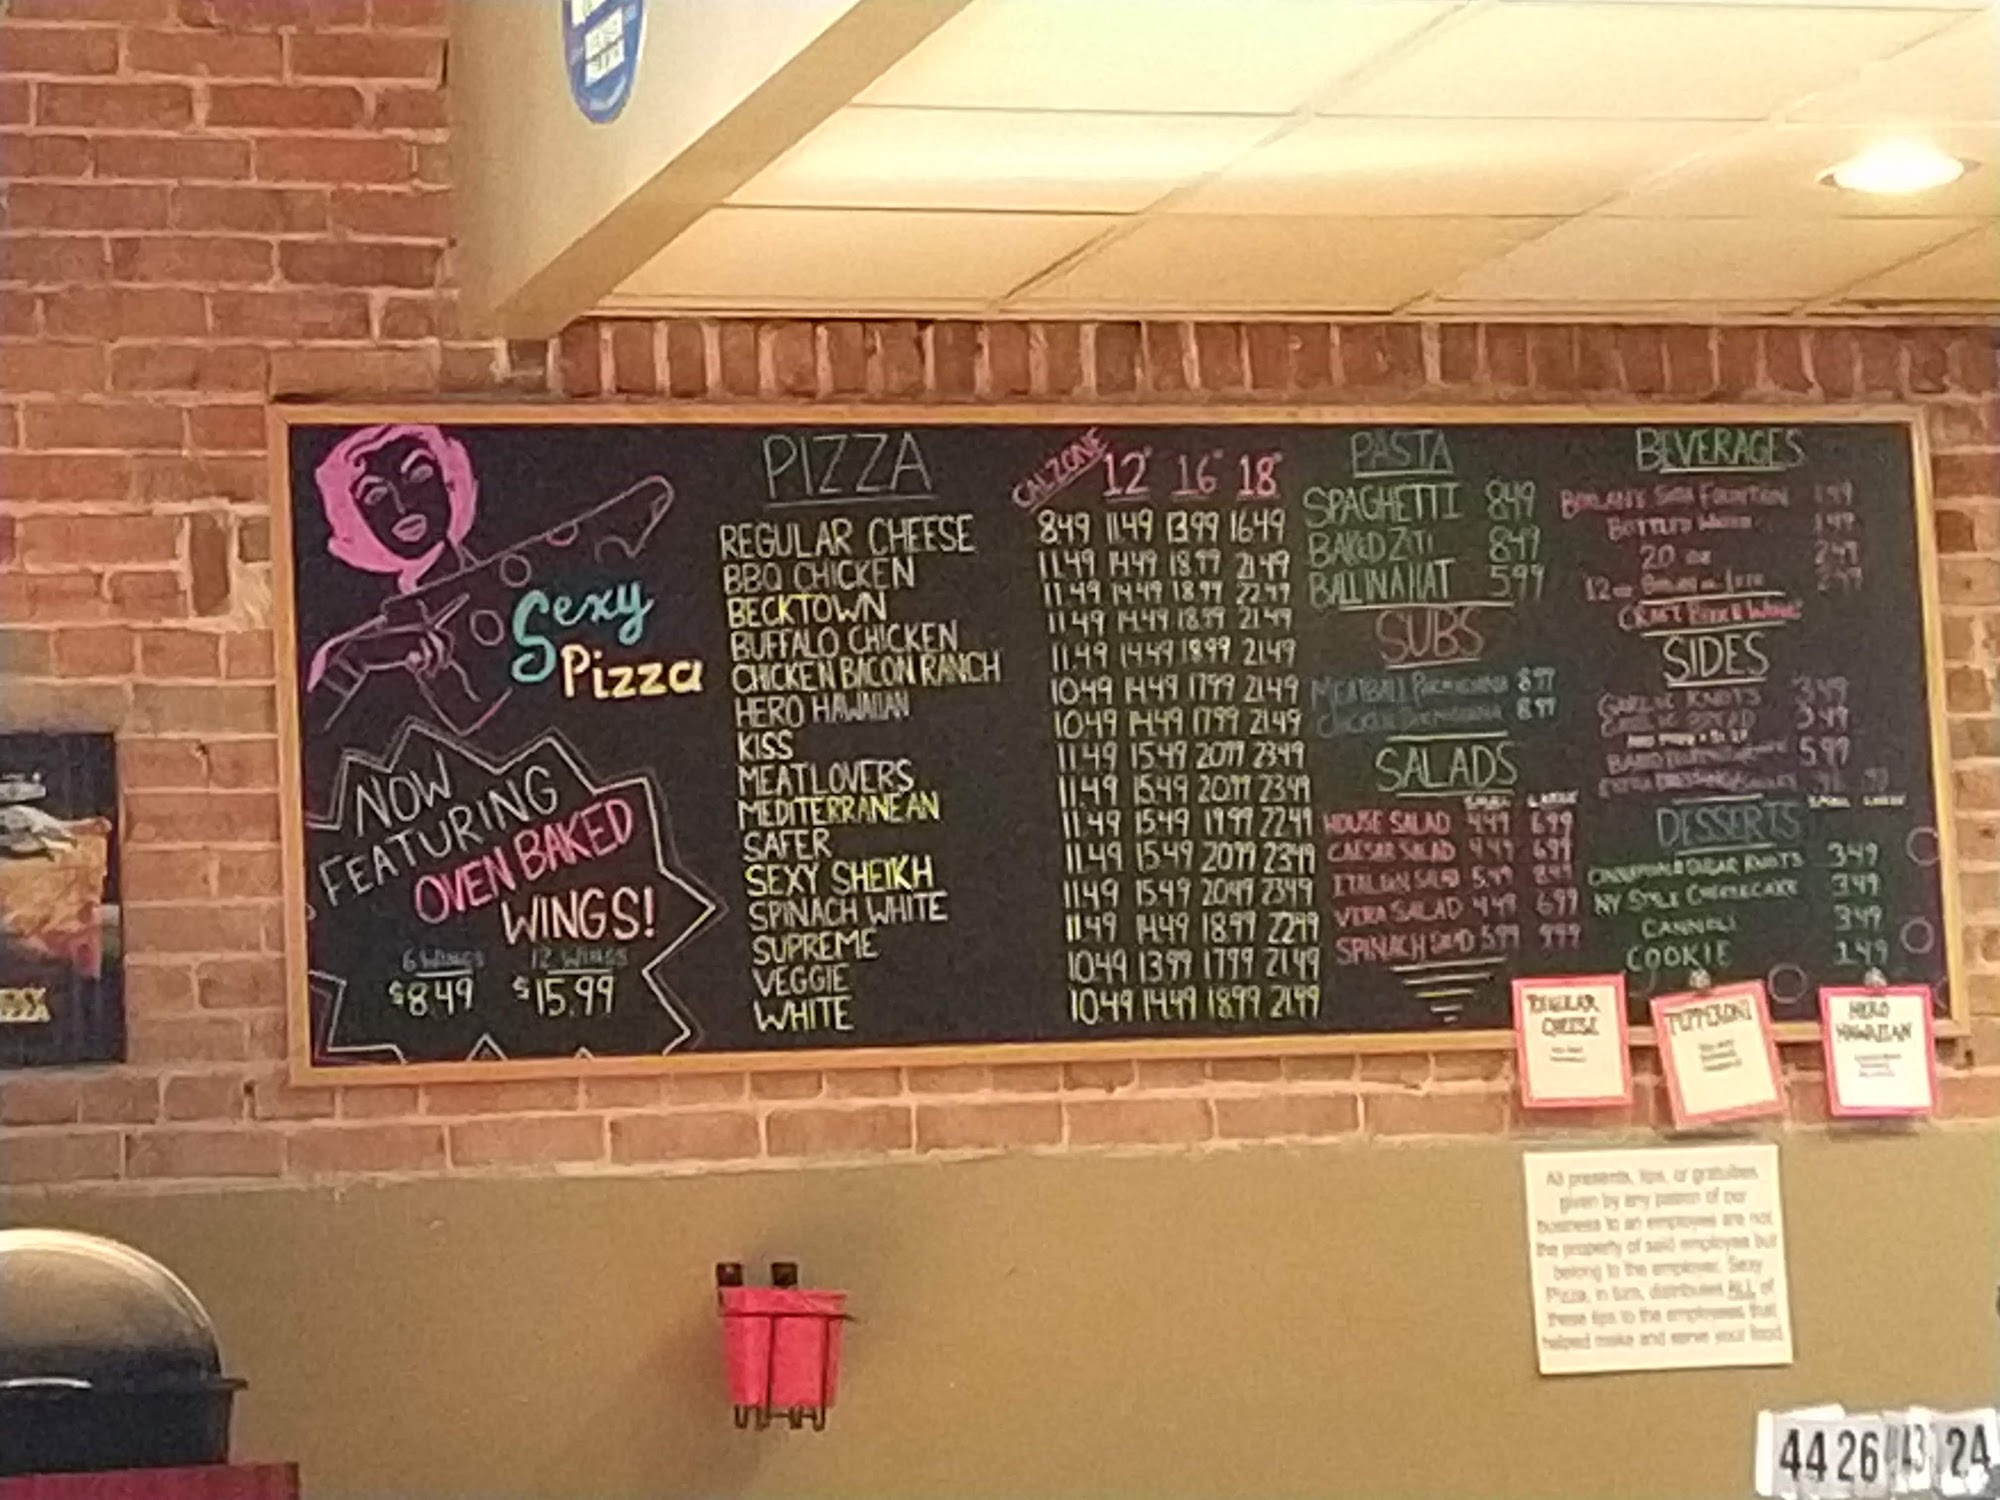 Sexy
Pizza
NOW
FEATURING
OVEN BAKED
WINGS!
6 WINGS 12 WINGS
$8.49 $15.99
PIZZA
CALZONE 12" 16" 18"
REGULAR CHEESE 8.49 11.49 13.99 16.49
BBQ CHICKEN 11.49 14.49 18.99 21.49
BECKTOWN 11.49 14.49 18.99 22.99
BUFFALO CHICKEN 11.49 14.49 18.99 21.49
CHICKEN BACON RANCH 11.49 14.49 18.99 21.49
HERO HAWAIIAN 10.49 14.49 17.99 21.49
KISS 10.49 14.49 17.99 21.49
MEATLOVERS 11.49 15.49 20.99 23.49
MEDITERRANEAN 11.49 15.49 20.99 23.49
SAFER 11.49 15.49 19.99 22.49
SEXY SHEIKH 11.49 15.49 20.99 23.49
SPINACH WHITE 11.49 15.49 20.49 23.49
SUPREME 11.49 14.49 18.99 22.99
VEGGIE 10.49 13.99 17.99 21.49
WHITE 10.49 14.49 18.99 21.99
PASTA
SPAGHETTI 8.49
BAKED ZITI 8.49
BALLINAHAT 5.99
SUBS
MEATBALL PARMIGIANA 8.99
CHICKEN PARMIGIANA 8.99
SALADS
SMALL LARGE
HOUSE SALAD 4.49 6.99
CAESAR SALAD 4.49 6.99
ITALIAN SALAD 5.49 8.49
VERA SALAD 4.49 6.99
SPINACH SALAD 5.99 9.99
BEVERAGES
SODA FOUNTAIN
BOTTLED WATER
20 oz
12 oz
CRAFT BEER & WINE
SIDES
GARLIC KNOTS 3.49
GARLIC BREAD 3.49
5.99
SMALL LARGE
DESSERTS
CINNAMON SUGAR KNOTS 3.49
NY STYLE CHEESECAKE 3.49
CANNOLI 3.49
COOKIE 1.49
REGULAR
CHEESE
PEPPERONI
HERO
HAWAIIAN
All presents, tips, or gratuities
given by any patron of our
business to an employee are not
the property of said employee but
belong to the employer. Sexy
Pizza, in turn, distributes ALL of
these tips to the employees that
helped make and serve your food.
44 26 43 24